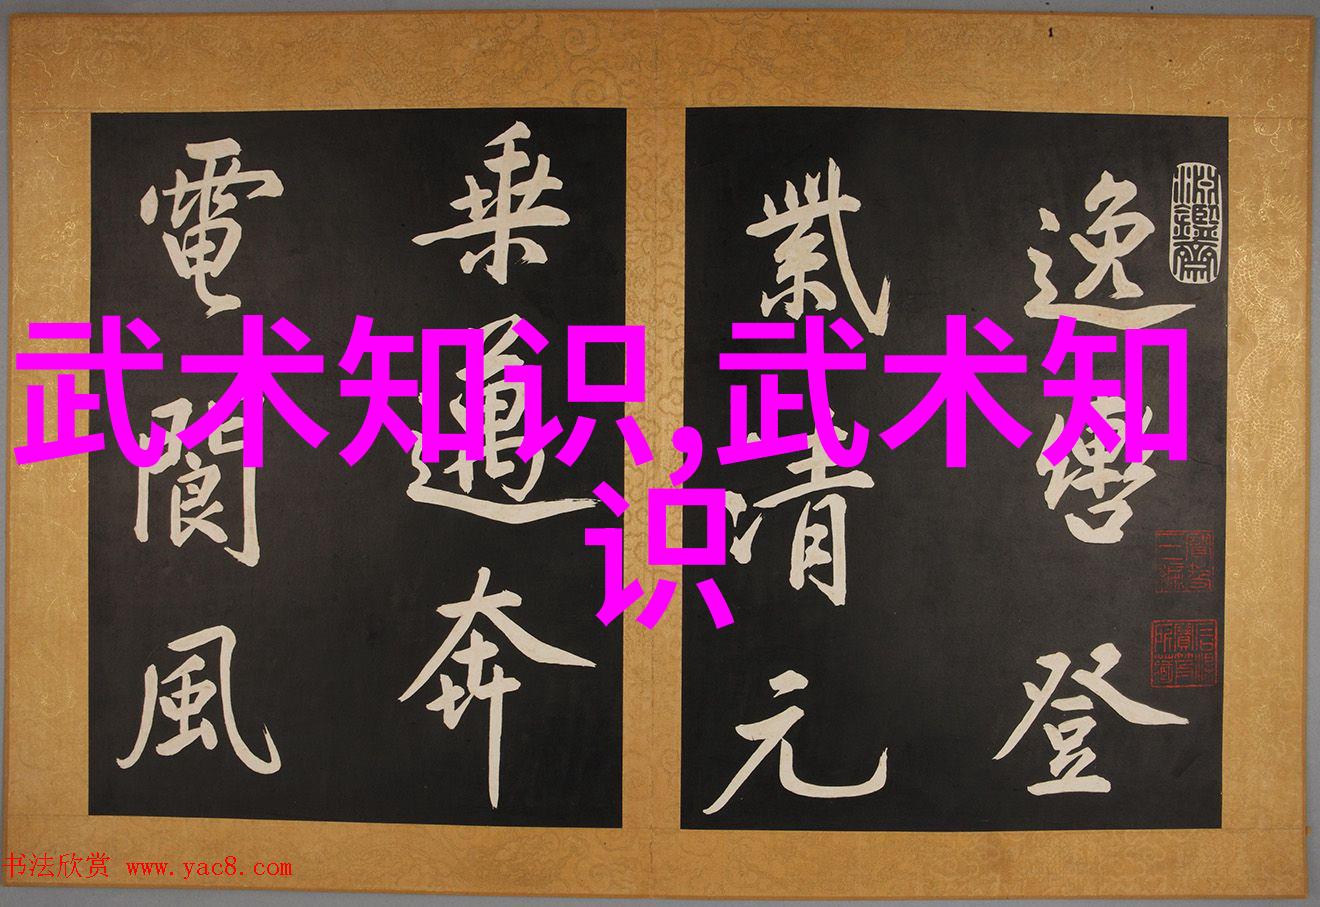 武术知识,武术知
识
逸轡登
紫清元
乘邁奔
電閬風
书法欣赏 www.yac8.com